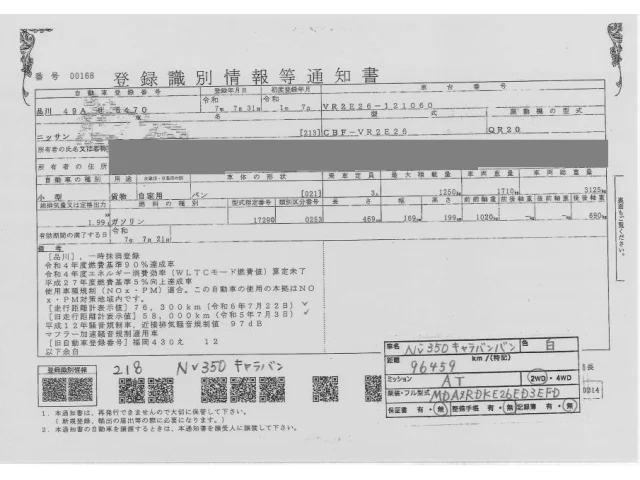 番号 00168
登録識別情報等通知書
自動車登録番号 登録年月日 初度登録年月 車台番号
令和 令和
7年 7月31日 1年 7月 VR2E26-121060
車名 型式 原動機の型式
ニッサン [213] CBF-VR2E26 QR20
所有者の氏名又は名称
所有者の住所
自動車の種別 用途 車体の形状 乗車定員 最大積載量 車両重量 車両総重量
小型 貨物 自家用 バン [021] 3人 1250kg 1710kg 3125kg
総排気量又は定格出力 燃料の種別 型式指定番号 類別区分番号 長さ 幅 高さ 前前軸重 前後軸重 後前軸重 後後軸重
1.99 ガソリン 17290 0253 469cm 169cm 199cm 1020kg -kg -kg 690kg
有効期間の満了する日 令和
7年 7月21日
備考
[品川], 一時抹消登録
令和4年度燃費基準90%達成車
令和4年度エネルギー消費効率(WLTCモード燃費値)算定未了
平成27年度燃費基準5%向上達成車
使用車種規制(NOx・PM)適合。この自動車の使用の本拠はNO
x・PM対策地域内です。
[走行距離計表示値]76,300km(令和6年7月22日)
[旧走行距離計表示値]58,000km(令和5年7月3日)
平成12年騒音規制車、近接排気騒音規制値 97dB
マフラー加速騒音規制適用車
[旧自動車登録番号]福岡430え 12
以下余白
裏面もご覧ください。
登録識別情報
218 NV350キャラバン
車名 NV350キャラバンバン 色 白
距離 96459 km/(特記)
ミッション AT 2WD・4WD
類装・フル型式 MDA9RDKE26ED3EFD
保証書 有・無 整備手帳 有・無 記録簿 有・無
0214
1.本通知書は、再発行できませんので大切に保管して下さい。
(新規登録、輸出の届出等の際に必要になります。)
2.本通知書の自動車を譲渡するときは、本通知書を譲受人に譲渡して下さい。